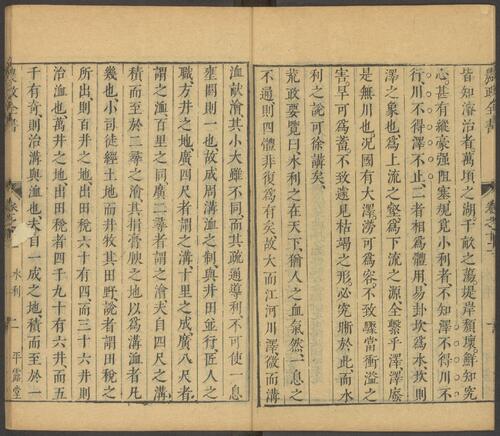 皆知濬治者萬頃之湖千畝之蕩堤岸頹壞鮮知究
心甚有縱豪强阻塞規覓小利者不知澤不得川不
行川不得澤不止二者相爲體用易卦坎爲水坎則
澤之象也爲上流之壑爲下流之源全繫乎澤澤廢
是無川也況國有大澤澇可爲容不致驟當衝溢之
害旱可爲蓄不致遽見枯竭之形必究晣於此而水
利之說可徐講矣
荒政要覽曰水利之在天下猶人之血氣然一息之
不通則四體非復爲有矣故大而江河川澤微而溝
洫畎澮其小大雖不同而其疏通導利不可使一息
壅閼則一也故成周溝洫之制與井田並行匠人之
職方井之地廣四尺者謂之溝十里之成廣八尺者
謂之洫百里之同廣二尋者謂之澮夫自四尺之溝
積而至於二尋之澮其捐膏腴之地以爲溝洫者凡
幾也小司徒經土地而井牧其田野說者謂田稅之
所出則百井之地出田稅六十有四而三十六井則
治洫也萬井之地出田稅者四千九十有六井而五
千有奇則治溝與洫也夫自一成之地積而至於一
農政全書 水利 二 平露堂